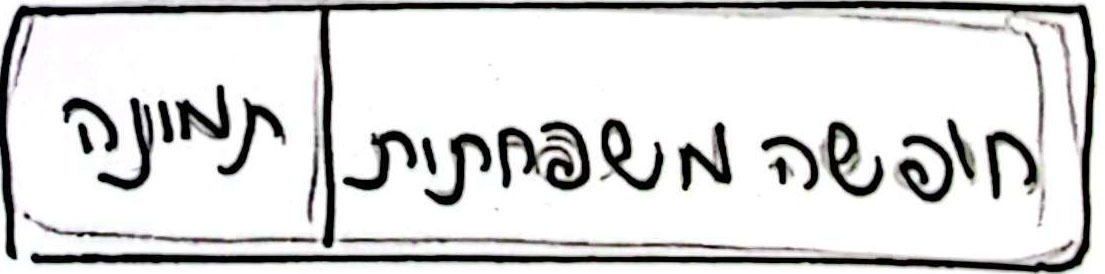 חופשה משפחתית
תמונה